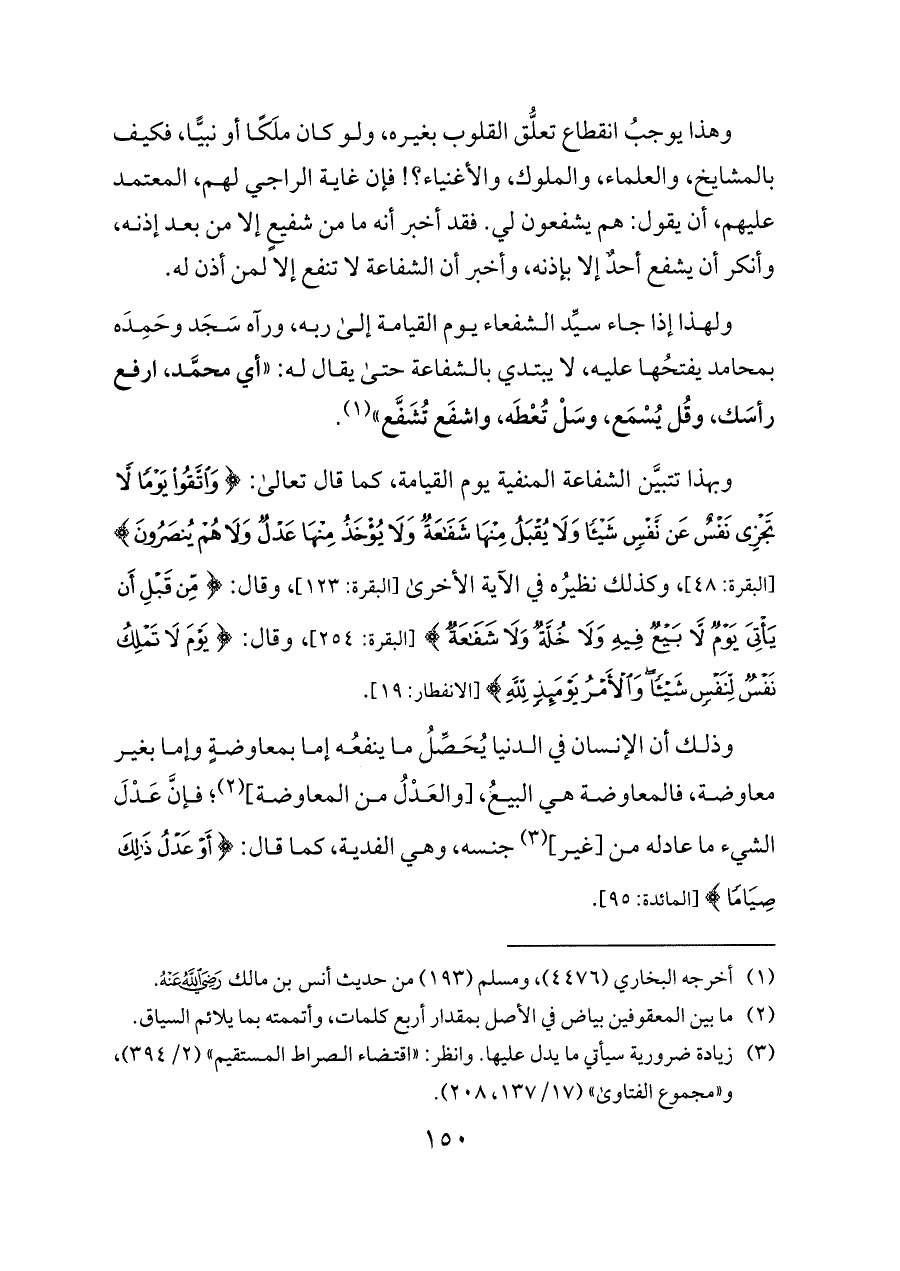 وهذا يوجبُ انقطاع تعلُّق القلوب بغيره، ولو كان ملَكًا أو نبيًّا، فكيف
بالمشايخ، والعلماء، والملوك، والأغنياء؟! فإن غاية الراجي لهم، المعتمد
عليهم، أن يقول: هم يشفعون لي. فقد أخبر أنه ما من شفيعٍ إلا من بعد إذنه،
وأنكر أن يشفع أحدٌ إلا بإذنه، وأخبر أن الشفاعة لا تنفع إلا لمن أذن له.
ولهذا إذا جاء سيِّد الشفعاء يوم القيامة إلىٰ ربه، ورآه سَجَد وحَمِدَه
بمحامد يفتحُها عليه، لا يبتدي بالشفاعة حتىٰ يقال له: «أي محمَّد، ارفع
رأسَك، وقُل يُسْمَع، وسَلْ تُعْطَه، واشفَع تُشَفَّع»(١).
وبهذا تتبيَّن الشفاعة المنفية يوم القيامة، كما قال تعالىٰ: ﴿ وَٱتَّقُوا۟ يَوْمًا لَّا
تَجْزِى نَفْسٌ عَن نَّفْسٍ شَيْـًٔا وَلَا يُقْبَلُ مِنْهَا شَفَٰعَةٌ وَلَا يُؤْخَذُ مِنْهَا عَدْلٌ وَلَا هُمْ يُنصَرُونَ ﴾
[البقرة: ٤٨]، وكذلك نظيرُه في الآية الأخرىٰ [البقرة: ١٢٣]، وقال: ﴿ مِّن قَبْلِ أَن
يَأْتِىَ يَوْمٌ لَّا بَيْعٌ فِيهِ وَلَا خُلَّةٌ وَلَا شَفَٰعَةٌ ﴾ [البقرة: ٢٥٤]، وقال: ﴿ يَوْمَ لَا تَمْلِكُ
نَفْسٌ لِّنَفْسٍ شَيْـًٔا ۖ وَٱلْأَمْرُ يَوْمَئِذٍ لِّلَّهِ ﴾ [الانفطار: ١٩].
وذلك أن الإنسان في الدنيا يُحَصِّلُ ما ينفعُه إما بمعاوضةٍ وإما بغير
معاوضة، فالمعاوضة هي البيعُ، [والعَدْلُ من المعاوضة](٢)؛ فإنَّ عَدْلَ
الشيء ما عادله من [غير](٣) جنسه، وهي الفدية، كما قال: ﴿ أَوْ عَدْلُ ذَٰلِكَ
صِيَامًا ﴾ [المائدة: ٩٥].
(١) أخرجه البخاري (٤٤٧٦)، ومسلم (١٩٣) من حديث أنس بن مالك رَضِيَ اللَّهُ عَنْهُ.
(٢) ما بين المعقوفين بياض في الأصل بمقدار أربع كلمات، وأتممته بما يلائم السياق.
(٣) زيادة ضرورية سيأتي ما يدل عليها. وانظر: «اقتضاء الصراط المستقيم» (٢/ ٣٩٤)،
و«مجموع الفتاوىٰ» (١٧/ ١٣٧، ٢٠٨).
١٥٠